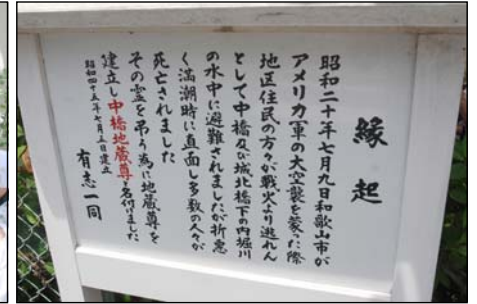 縁起
昭和二十年七月九日和歌山市が
アメリカ軍の大空襲を蒙った際
地区住民の方々が戦火より逃れん
として中橋及び城北橋下の内堀川
の水中に避難されましたが折悪
く満潮時に直面し多数の人々が
死亡されました
その霊を弔う為に地蔵尊を
建立し中橋地蔵尊と名付けました
昭和四十五年七月 建立
有志一同